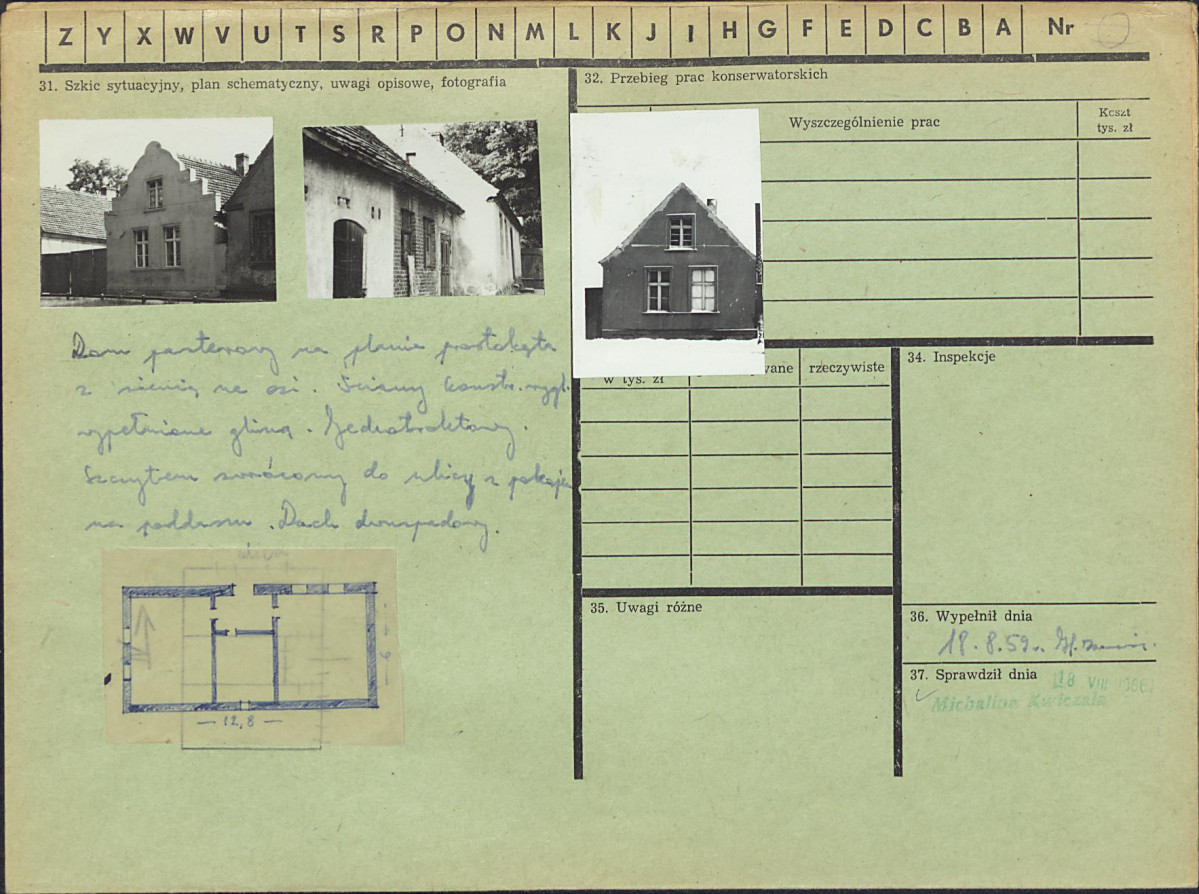 Z Y X W V U T S R P O N M L K J I H G F E D C B A Nr
31. Szkic sytuacyjny, plan schematyczny, uwagi opisowe, fotografia
Dom parterowy na planie prostokąta
z sienią na osi. Ściany konstr. rygl.
wypełnione gliną. Jednotraktowy.
Szczytem zwrócony do ulicy z pokojem
na poddaszu. Dach dwuspadowy.
ulica
6
12,8
32. Przebieg prac konserwatorskich
Wyszczególnienie prac
Koszt
tys. zł
w tys. zł
wane
rzeczywiste
34. Inspekcje
35. Uwagi różne
36. Wypełnił dnia
18.8.59r.
37. Sprawdził dnia
18 VIII 196
Michalina Kwiczala